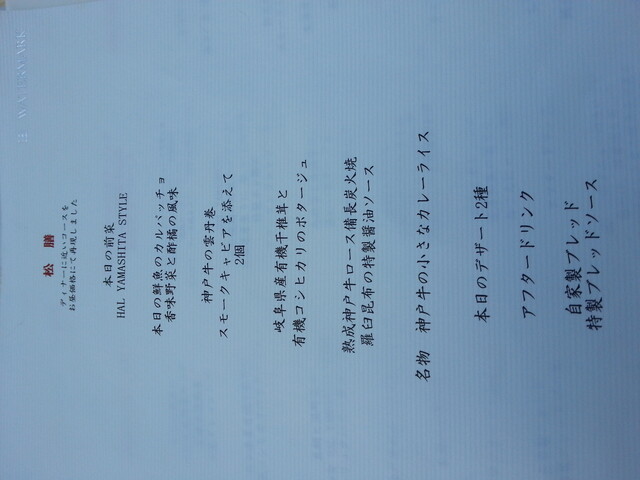 松 膳
ディナーに近いコースを
お昼価格にて再現しました
本日の前菜
HAL YAMASHITA STYLE
本日の鮮魚のカルパッチョ
香味野菜と酢橘の風味
神戸牛の雲丹巻
スモークキャビアを添えて
2個
岐阜県産有機干椎茸と
有機コシヒカリのポタージュ
熟成神戸牛ロース備長炭火焼
羅臼昆布の特製醤油ソース
名物 神戸牛の小さなカレーライス
本日のデザート2種
アフタードリンク
自家製ブレッド
特製ブレッドソース